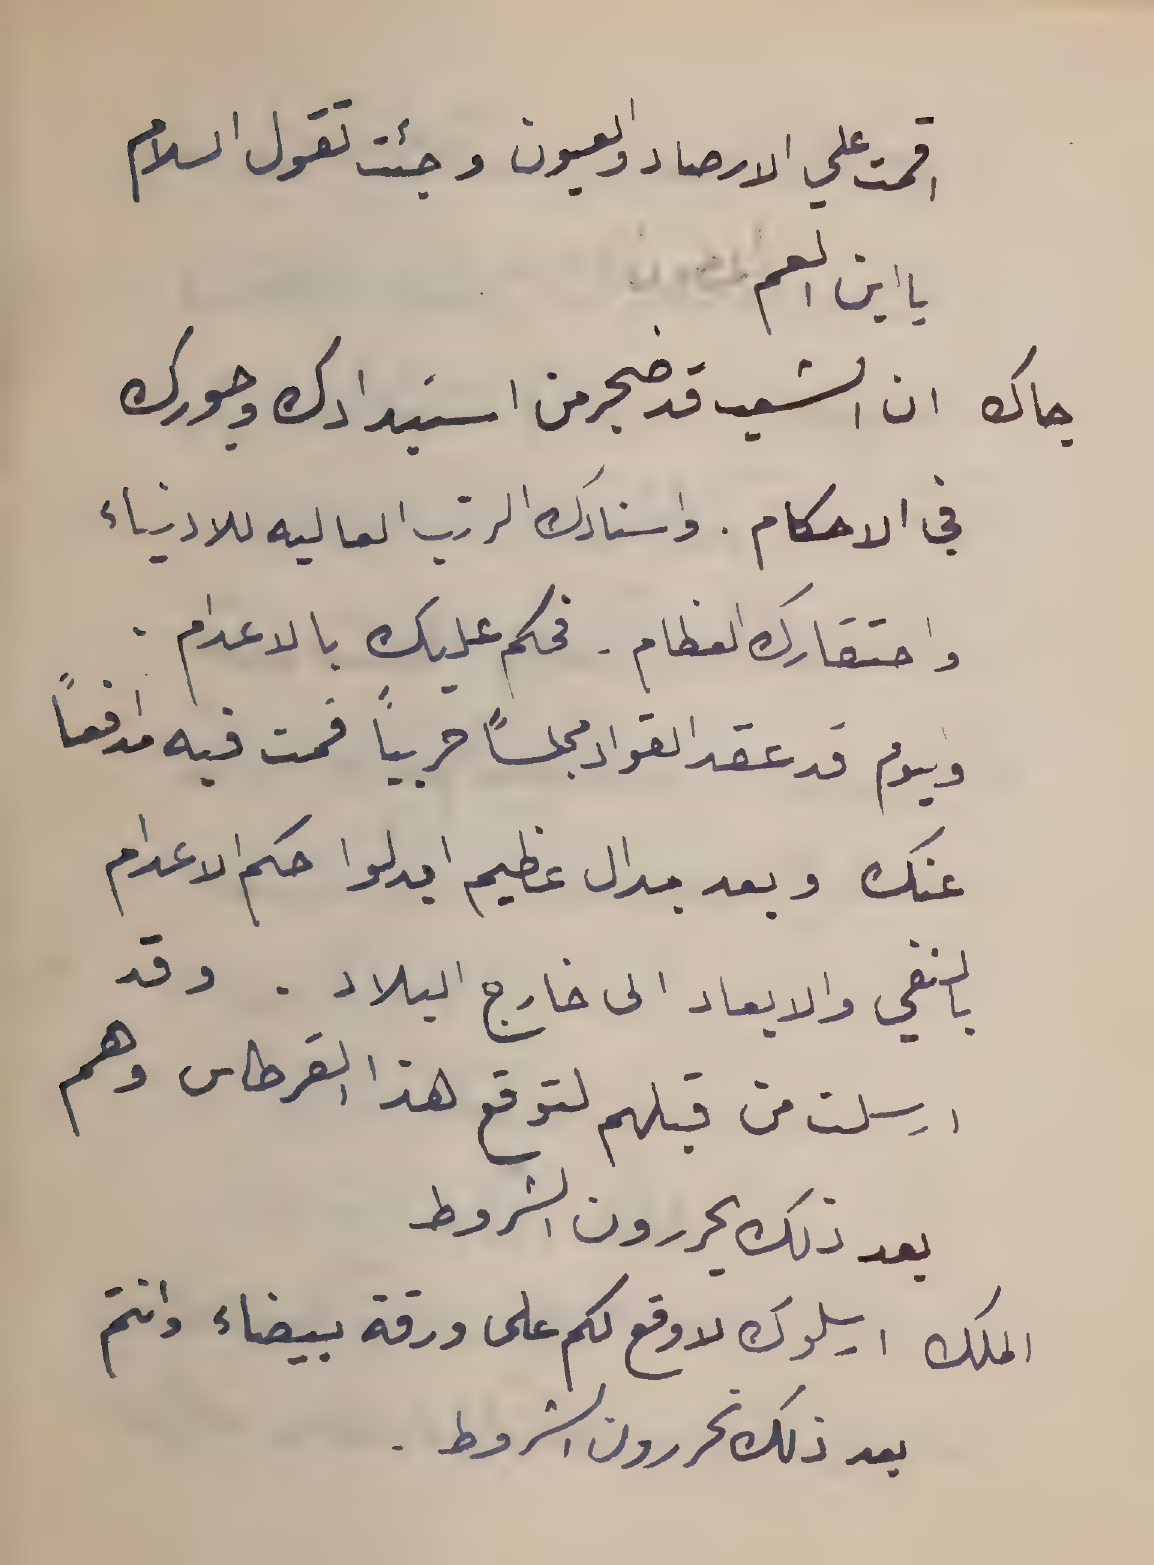 اقمت علي الارصاد والعيون وجئت تقول السلام
يا ابن العم
جاك ان الشعب قد ضجر من استبدادك وجورك
في الاحكام . واسنادك الرتب العاليه للادنياء
واحتقارك العظام . فحكم عليك بالاعدام .
واليوم قد عقد القواد مجلساً حربياً قمت فيه مدافعاً
عنك وبعد جدال عظيم ابدلوا حكم الاعدام
بالنفي والابعاد الى خارج البلاد . وقد
ارسلت من قبلهم لتوقع هذا القرطاس وهم
بعد ذلك يحررون الشروط
الملك ارسلوك لاوقع لكم على ورقة بيضاء وانتم
بعد ذلك تحررون الشروط .